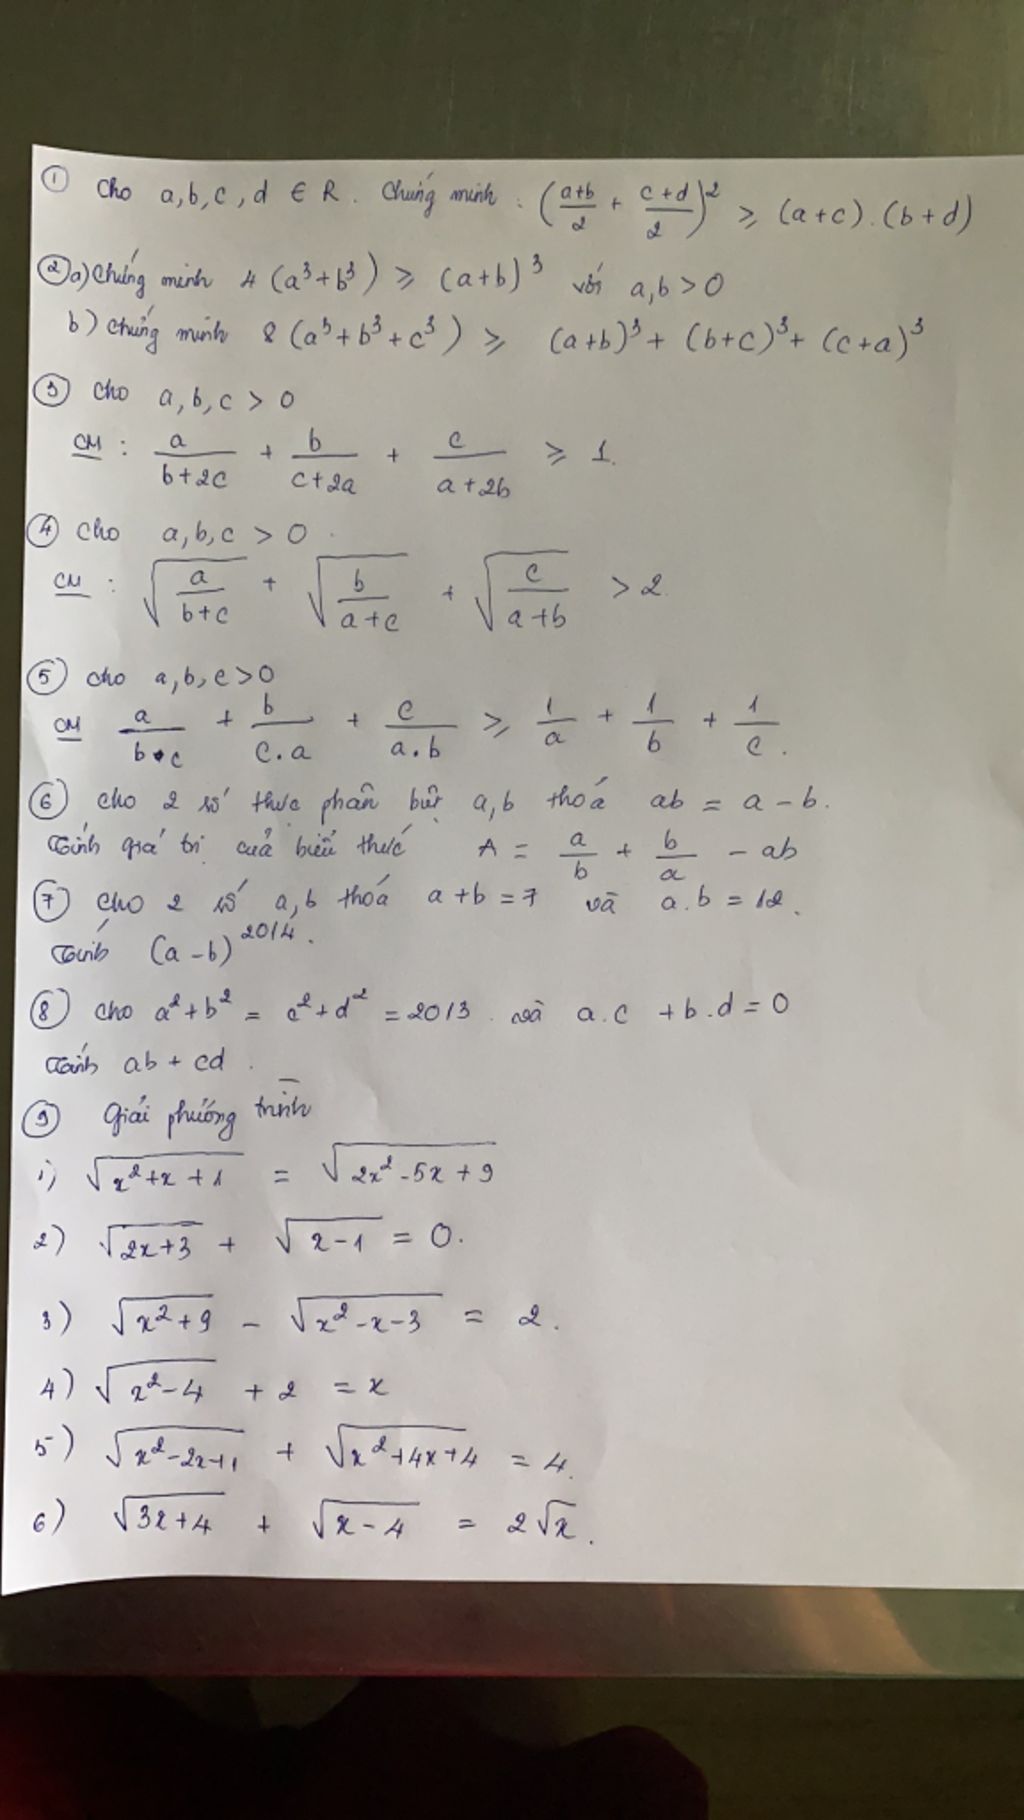 ① Cho a, b, c, d ∈ R. Chứng minh : ((a+b)/2 + (c+d)/2)² ⩾ (a+c).(b+d)
② a) Chứng minh 4(a³+b³) ⩾ (a+b)³ với a,b > 0
b) Chứng minh 8(a³+b³+c³) ⩾ (a+b)³ + (b+c)³ + (c+a)³
③ Cho a, b, c > 0
CM : a/(b+2c) + b/(c+2a) + c/(a+2b) ⩾ 1.
④ Cho a, b, c > 0.
CM : √(a/(b+c)) + √(b/(a+c)) + √(c/(a+b)) > 2.
⑤ Cho a, b, c > 0
CM a/(b.c) + b/(c.a) + c/(a.b) ⩾ 1/a + 1/b + 1/c.
⑥ Cho 2 số thực phân biệt a, b thoả ab = a - b.
Tính giá trị của biểu thức A = a/b + b/a - ab
⑦ Cho 2 số a, b thoả a + b = 7 và a.b = 12.
Tính (a-b)²⁰¹⁴.
⑧ Cho a²+b² = c²+d² = 2013. và a.c + b.d = 0
Tính ab + cd.
⑨ Giải phương trình
1) √(x²+x+1) = √(2x²-5x+9)
2) √(2x+3) + √(x-1) = 0.
3) √(x²+9) - √(x²-x-3) = 2.
4) √(x²-4) + 2 = x
5) √(x²-2x+1) + √(x²+4x+4) = 4.
6) √(3x+4) + √(x-4) = 2√x.